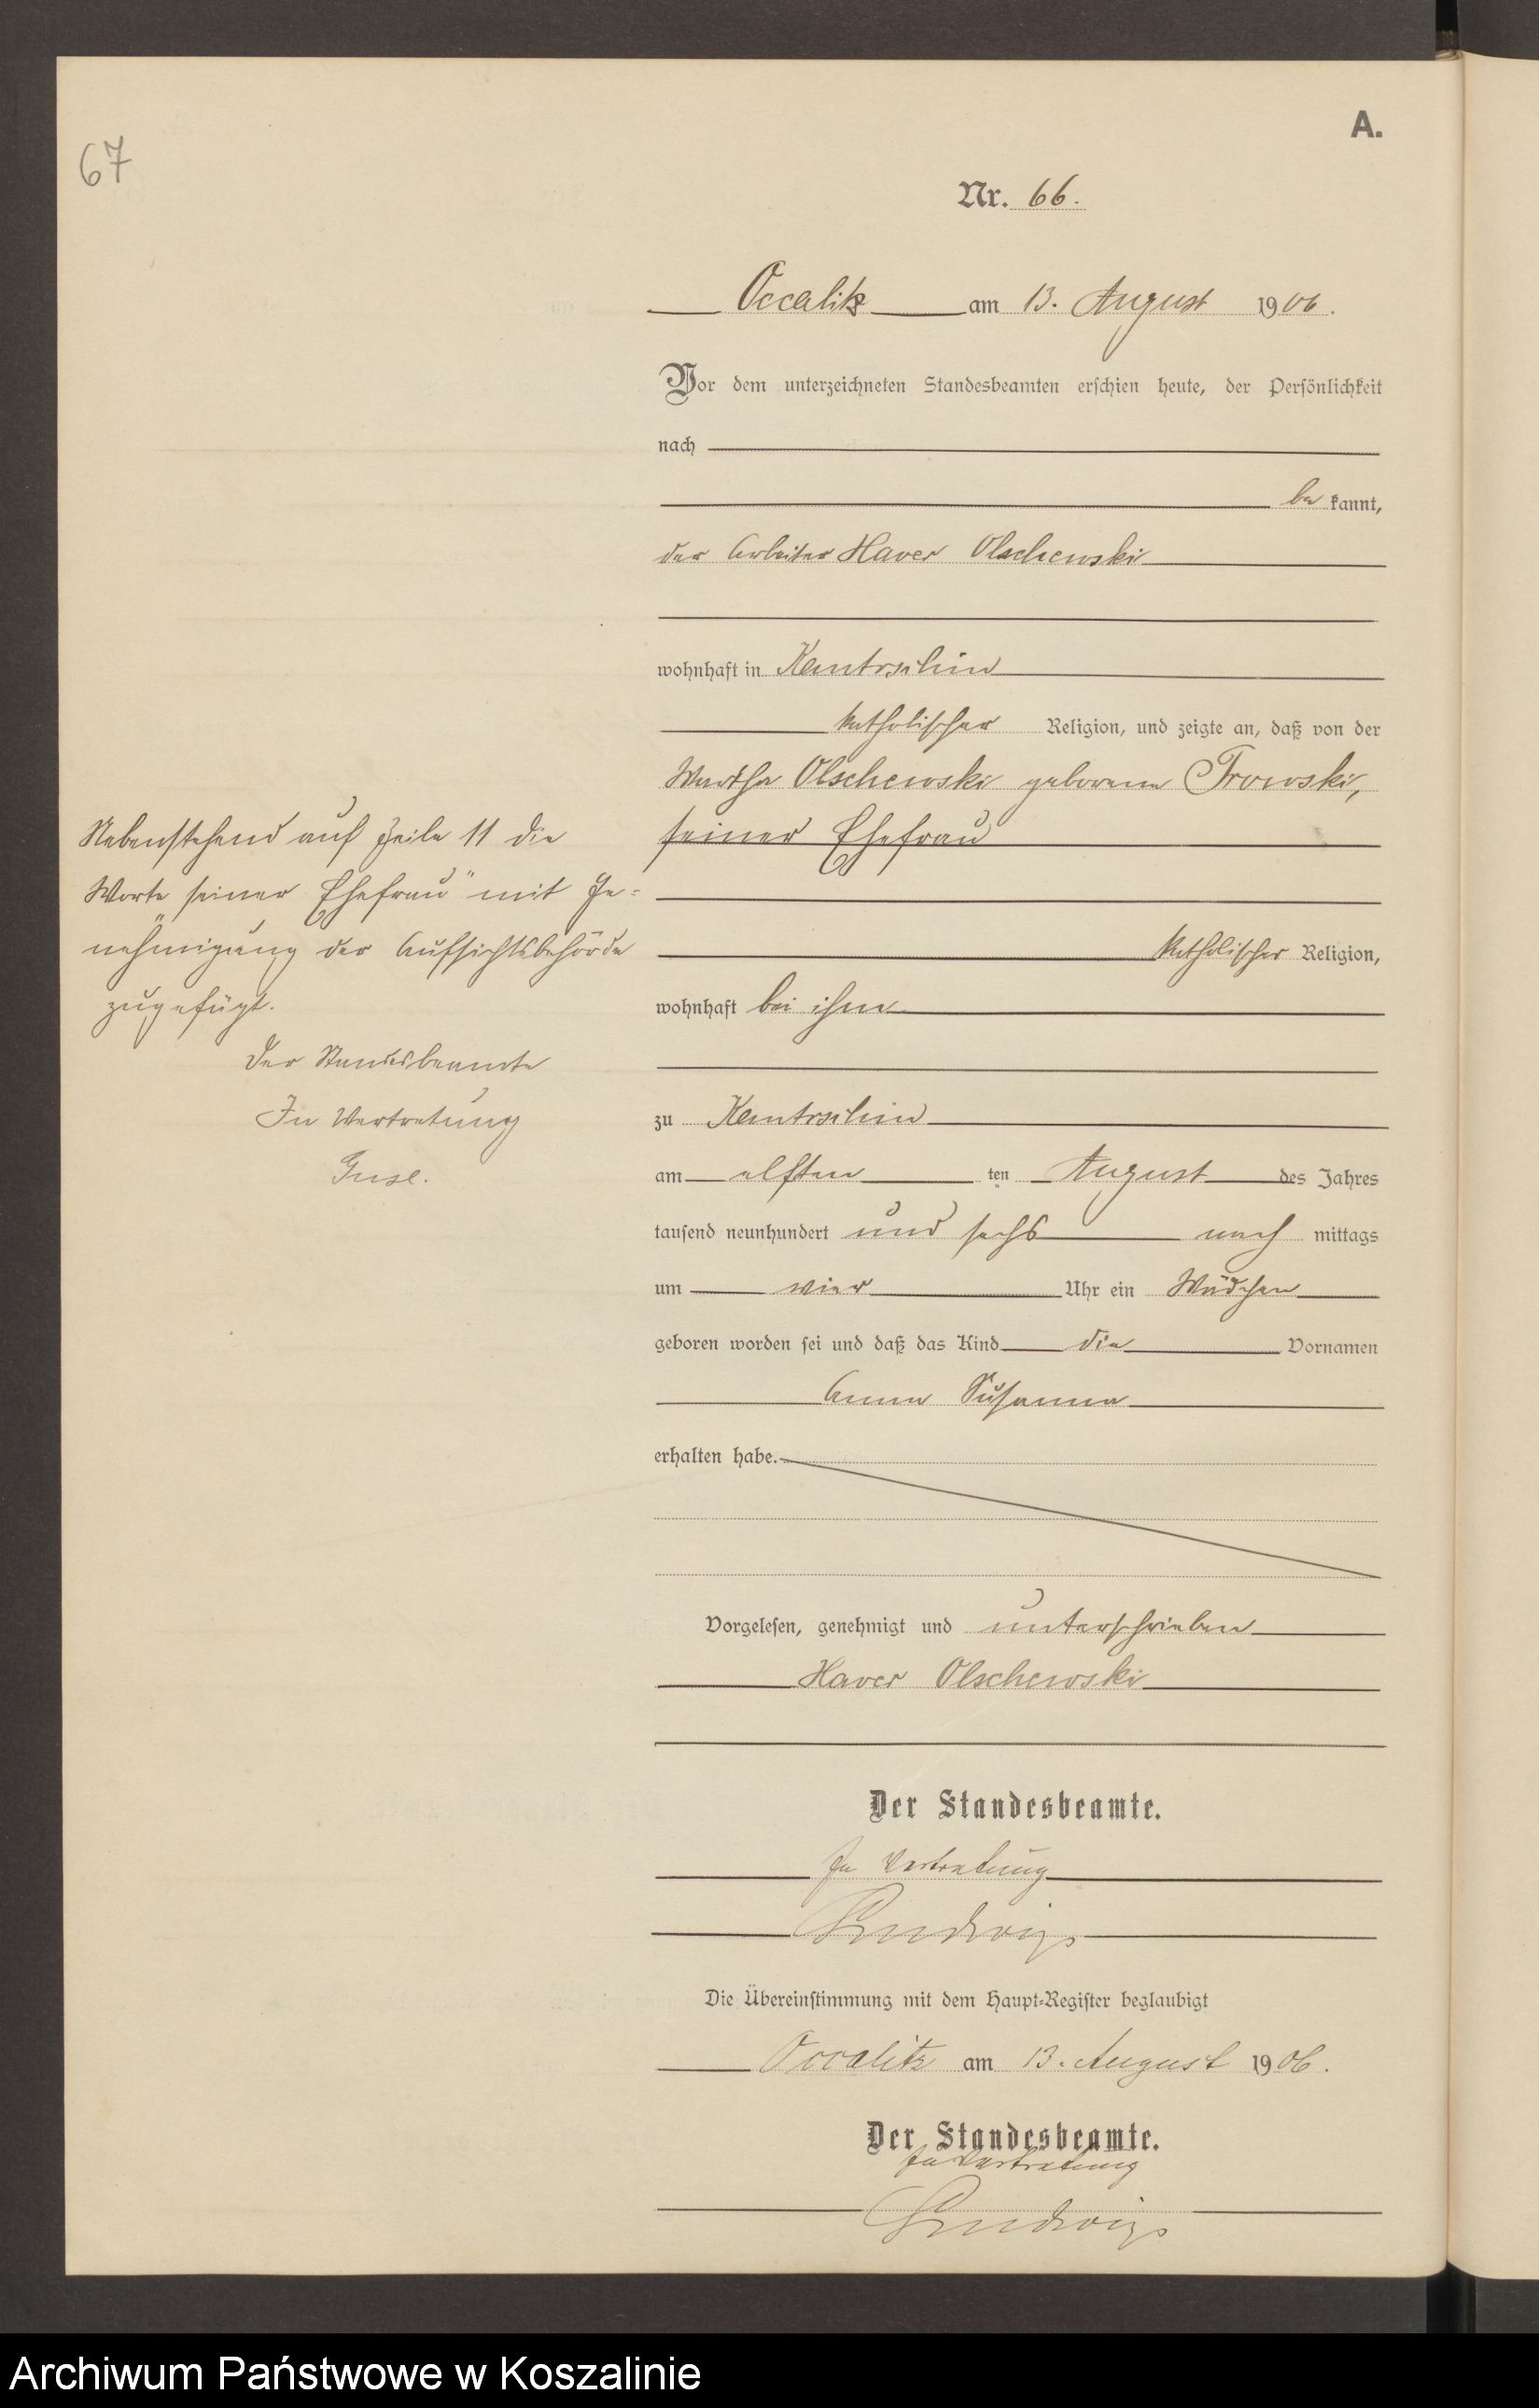 67
A.
Nr. 66.
Occalitz am 13. August 1906.
Vor dem unterzeichneten Standesbeamten erschien heute, der Persönlichkeit
nach
be kannt,
der Arbeiter Xaver Olschewski
wohnhaft in Kantrschin
katholischer Religion, und zeigte an, daß von der
Martha Olschewski geborene Trowski,
seiner Ehefrau
katholischer Religion,
wohnhaft bei ihm
zu Kantrschin
am elften ten August des Jahres
tausend neunhundert und sechs nach mittags
um vier Uhr ein Mädchen
geboren worden sei und daß das Kind die Vornamen
Anna Susanna
erhalten habe.
Vorgelesen, genehmigt und unterschrieben
Xaver Olschewski
Der Standesbeamte.
In Vertretung
Die Übereinstimmung mit dem Haupt-Register beglaubigt
Occalitz am 13. August 1906.
Der Standesbeamte.
In Vertretung
Nebenstehend auf Zeile 11 die
Worte "seiner Ehefrau" mit Ge-
nehmigung der Aufsichtsbehörde
zugefügt.
Der Standesbeamte
In Vertretung
Archiwum Państwowe w Koszalinie